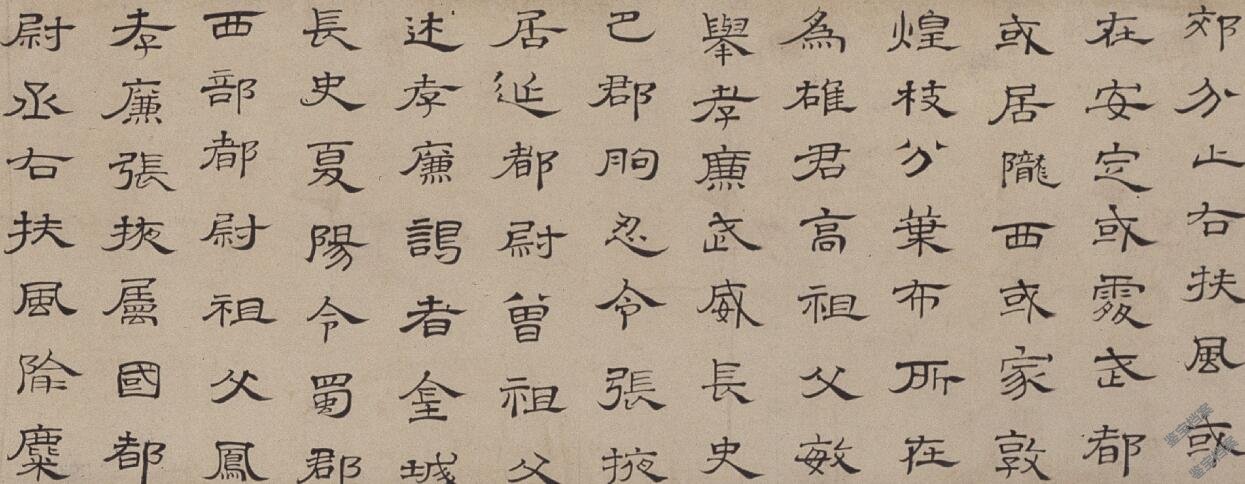 郊分止右扶風或
在安定或處武都
或居隴西或家敦
煌枝分葉布所在
為雄君高祖父敏
舉孝廉武威長史
巴郡朐忍令張掖
居延都尉曾祖父
述孝廉謁者金城
長史夏陽令蜀郡
西部都尉祖父鳳
孝廉張掖屬國都
尉丞右扶風隃麋
鉴宝档案
鉴宝档案